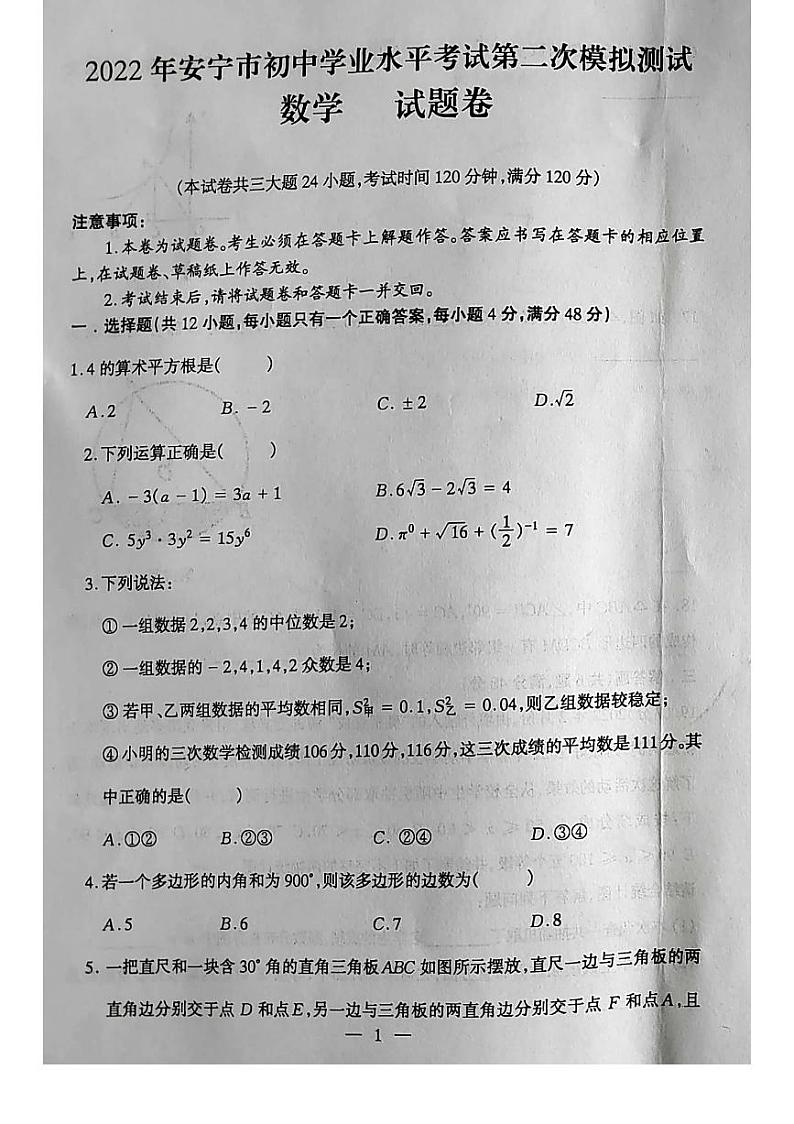 2022年安宁市初中学业水平考试第二次模拟测试
数学 试题卷
(本试卷共三大题24小题,考试时间120分钟,满分120分)
注意事项:
1.本卷为试题卷。考生必须在答题卡上解题作答。答案应书写在答题卡的相应位置
上,在试题卷、草稿纸上作答无效。
2.考试结束后,请将试题卷和答题卡一并交回。
一.选择题(共12小题,每小题只有一个正确答案,每小题4分,满分48分)
1.4的算术平方根是( )
A.2 B.-2 C.±2 D.√2
2.下列运算正确是( )
A.-3(a-1)=3a+1 B.6√3-2√3=4
C. 5y³·3y²=15y⁶ D.π⁰+√16+(1/2)⁻¹=7
3.下列说法:
①一组数据2,2,3,4的中位数是2;
②一组数据的-2,4,1,4,2众数是4;
③若甲、乙两组数据的平均数相同,S²甲=0.1,S²乙=0.04,则乙组数据较稳定;
④小明的三次数学检测成绩106分,110分,116分,这三次成绩的平均数是111分。其
中正确的是( )
A.①② B.②③ C.②④ D.③④
4.若一个多边形的内角和为900°,则该多边形的边数为( )
A.5 B.6 C.7 D.8
5.一把直尺和一块含30°角的直角三角板ABC如图所示摆放,直尺一边与三角板的两
直角边分别交于点D和点E,另一边与三角板的两直角边分别交于点F和点A,且
— 1 —